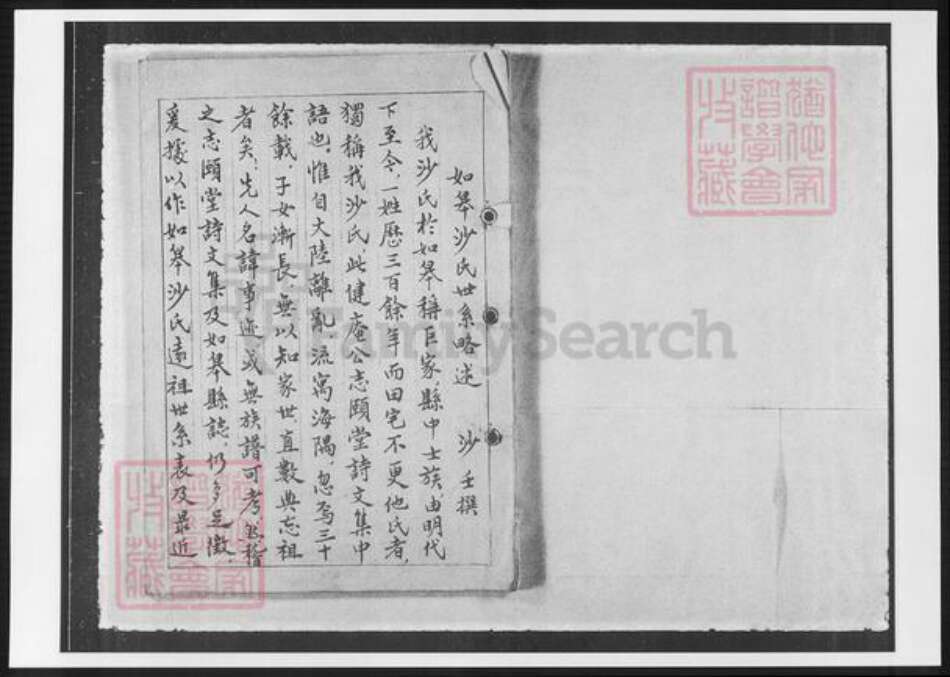 如皋沙氏世系略述 沙壬撰
我沙氏於如皋稱巨家，縣中士族，由明代
下至今，一姓歷三百餘年而田宅不更他氏者，
獨稱我沙氏，此健庵公志頤堂詩文集中
語也，惟自大陸離亂，流寓海隅，忽焉三十
餘載，子女漸長，無以知家世，直數典忘祖
者矣，先人名諱事迹或無族譜可考，然稽
之志頤堂詩文集及如皋縣誌，仍多足徵，
爰據以作如皋沙氏遠祖世系表及最近
猶他家
譜學會
收藏
FamilySearch
猶他家
譜學會
收藏